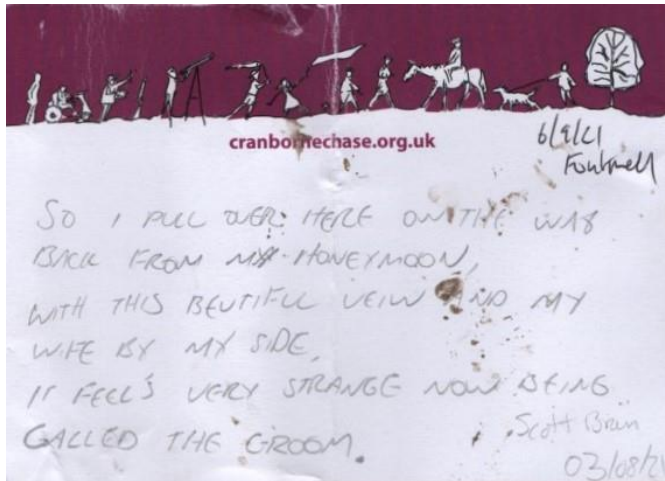 cranbornechase.org.uk
6/9/21
Fontmell
SO I PULL OVER HERE ON THE WAY
BACK FROM MY HONEYMOON,
WITH THIS BEUTIFUL VEIW AND MY
WIFE BY MY SIDE,
IT FEEL'S VERY STRANGE NOW BEING
CALLED THE GROOM.
Scott
03/08/21